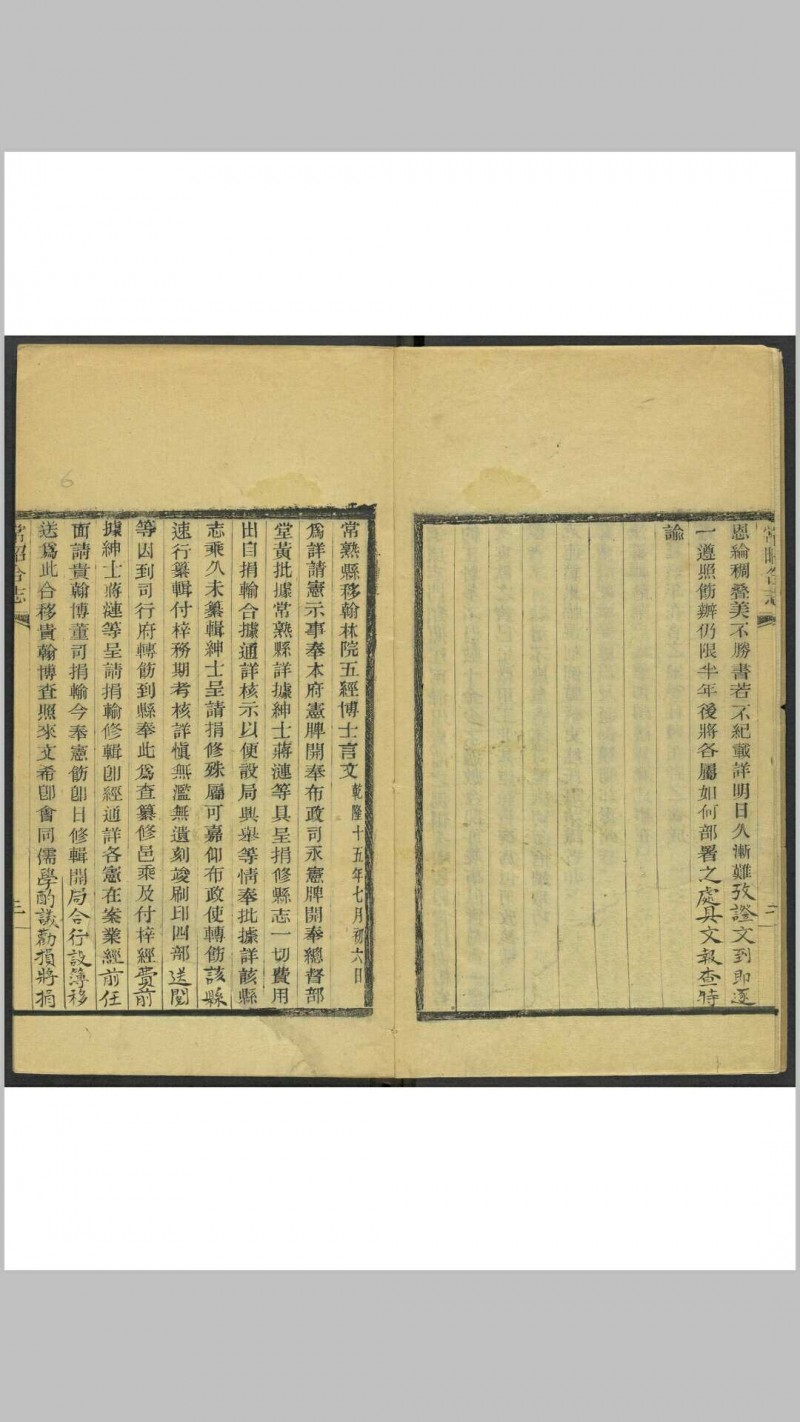 恩綸稠叠美不勝書若不紀載詳明日久漸難攷證文到即逐
一遵照飭辦仍限半年後將各屬如何部署之處具文報查特
諭
常熟縣移翰林院五經博士言文乾隆十五年七月初六日
爲詳請憲示事奉本府憲牌開奉布政司永憲牌開奉總督部
堂黃批據常熟縣詳據紳士蔣漣等具呈捐修縣志一切費用
出自捐輸合據通詳核示以便設局興舉等情奉批據詳該縣
志乘久未纂輯紳士呈請捐修殊屬可嘉仰布政使轉飭該縣
速行纂輯付梓務期考核詳愼無濫無遺刻竣刷印四部送閱
等因到司行府轉飭到縣奉此爲查纂修邑乘及付梓經費前
據紳士蔣漣等呈請捐輸修輯卽經通詳各憲在案業經前任
面請貴翰博董司捐輸今奉憲飭卽日修輯開局合行設簿移
送爲此合移貴翰博查照來文希卽會同儒學酌議勸捐將捐
常昭合志
三